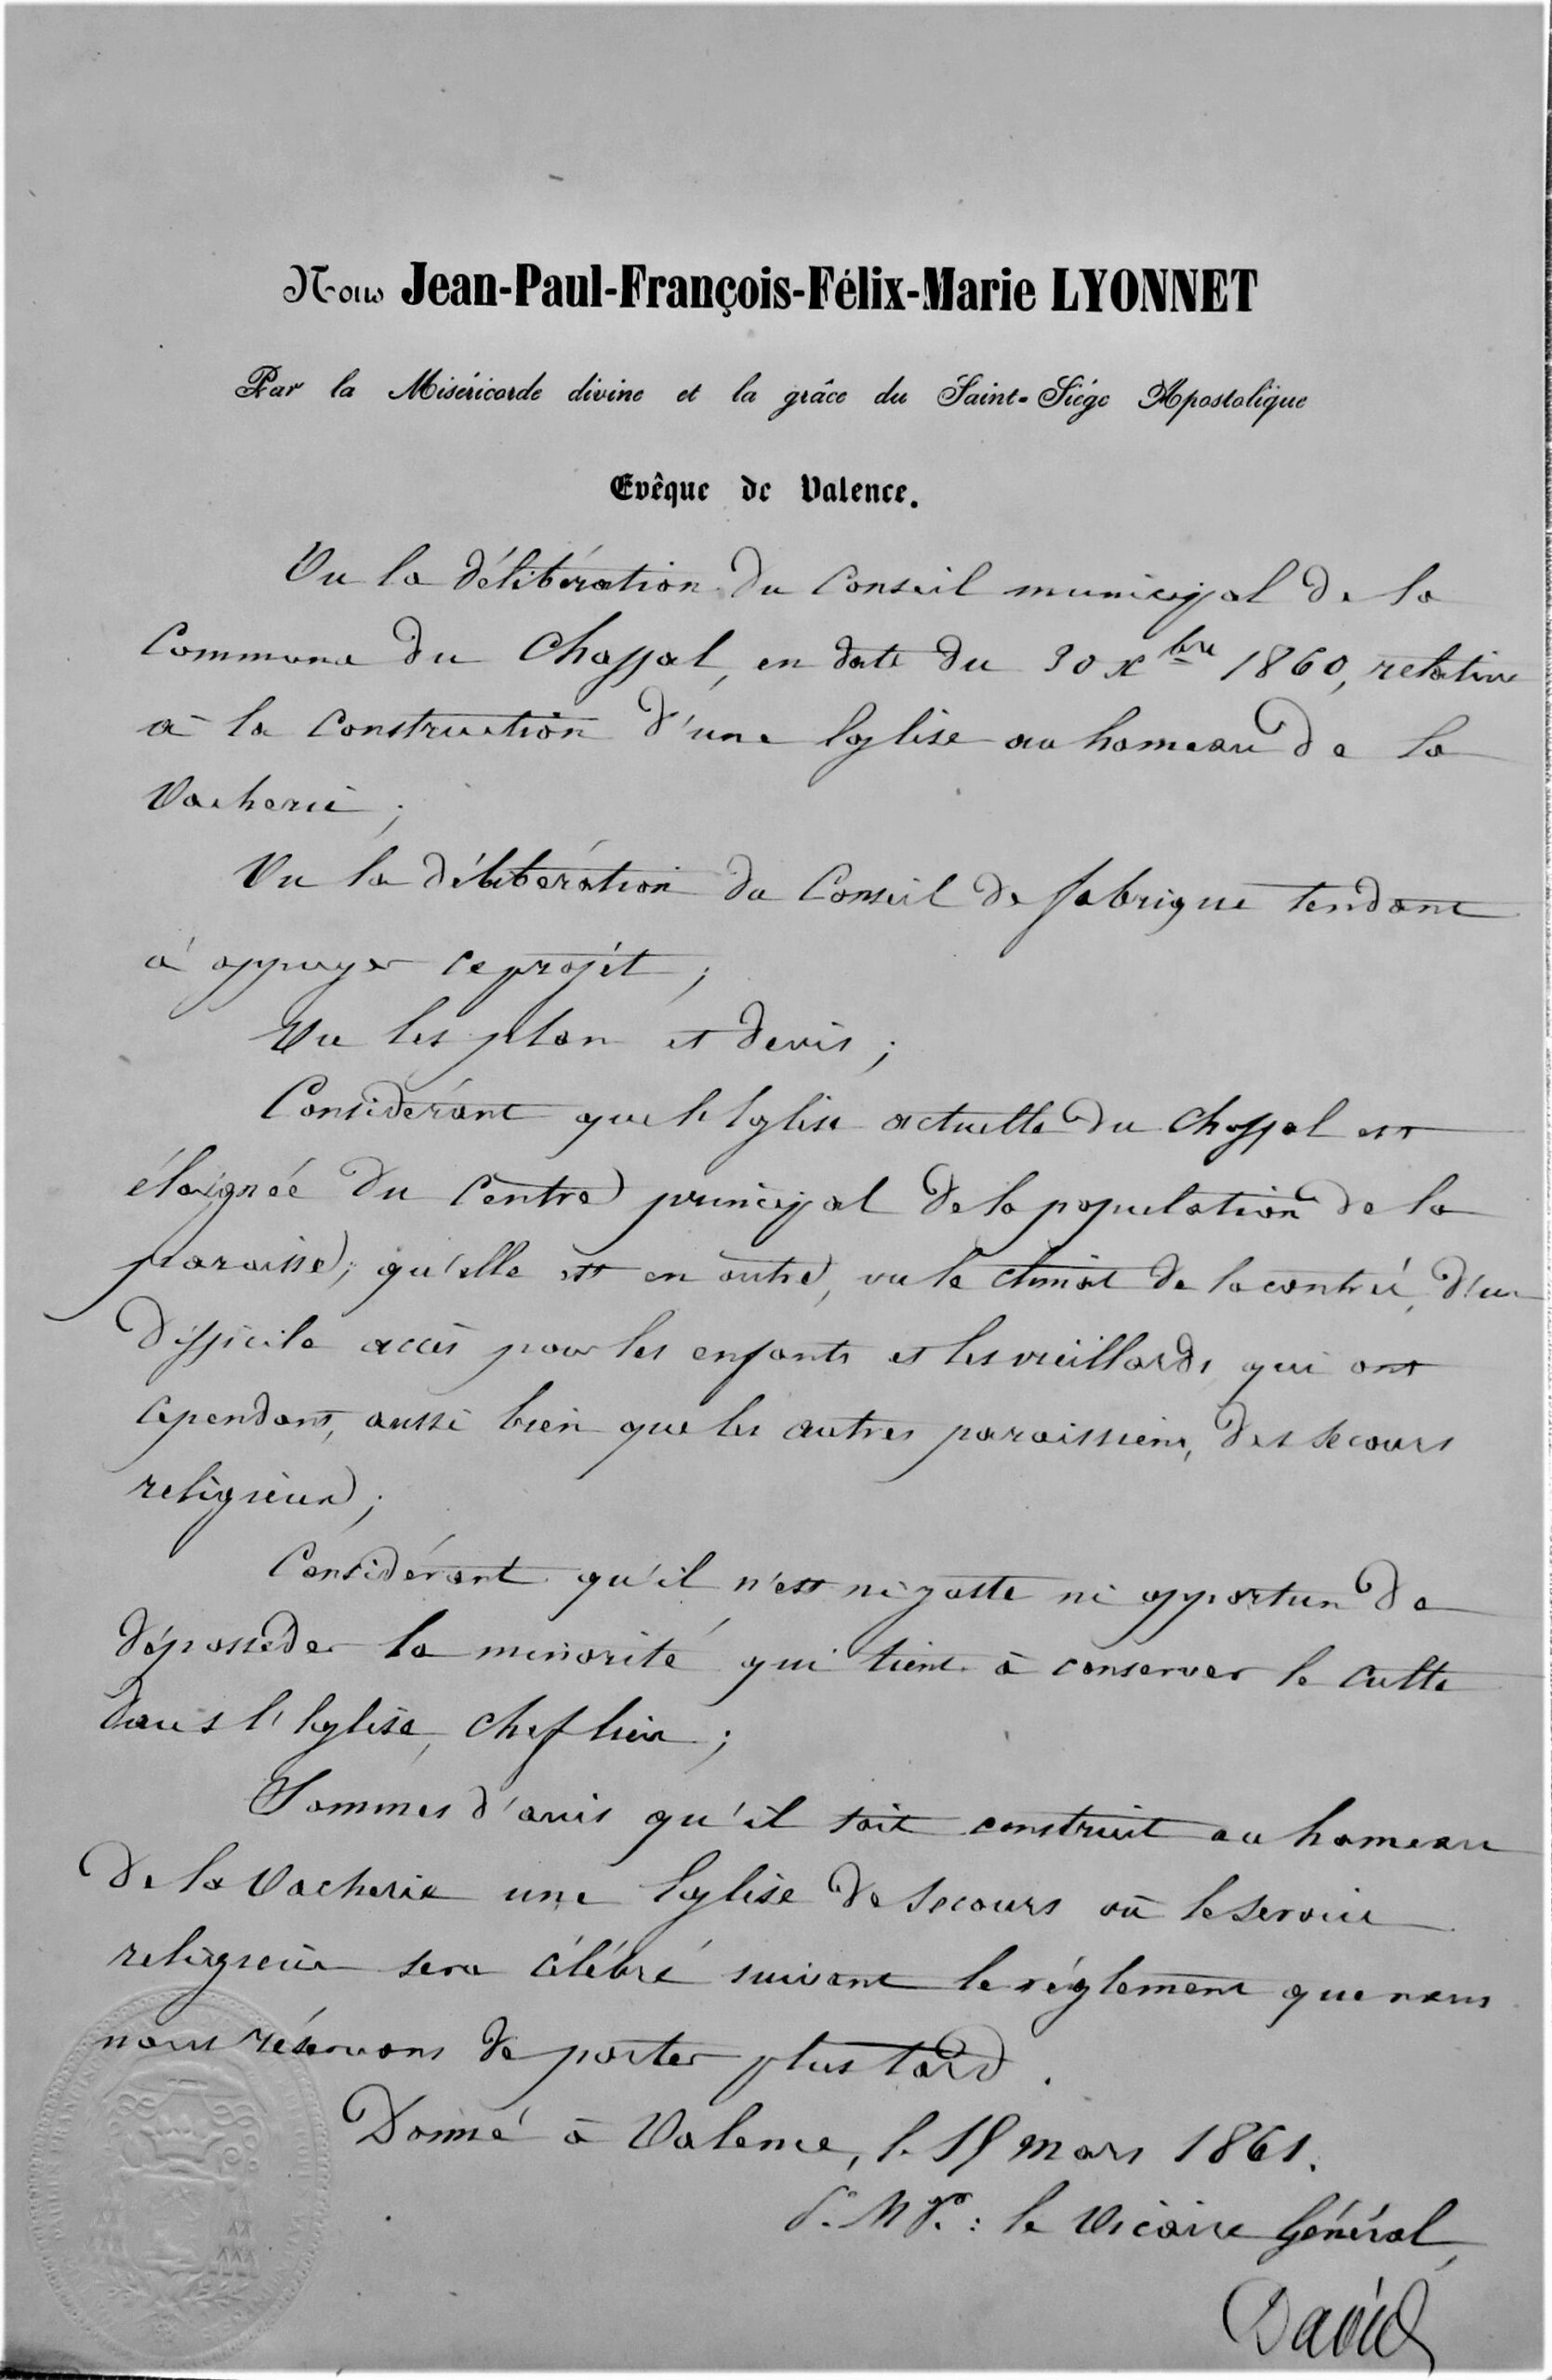 Nous Jean-Paul-François-Félix-Marie LYONNET
Par la Miséricorde divine et la grâce du Saint-Siége Apostolique
Evêque de Valence.
Vu la délibération du Conseil municipal de la
Commune du Chaffal, en date du 30 Xbre 1860, relative
à la Construction d'une Eglise au hameau de la
Vacherie ;
Vu la délibération du Conseil de fabrique tendant
à appuyer ce projet ;
Vu les plan et devis ;
Considérant que l'Eglise actuelle du Chaffal est
éloignée du Centre principal de la population de la
paroisse ; qu'elle est en outre, vu le climat de la contrée, d'un
difficile accès pour les enfants et les vieillards qui ont
cependant, aussi bien que les autres paroissiens, des secours
religieux ;
Considérant qu'il n'est ni juste ni opportun de
déposséder la minorité qui tient à conserver le culte
dans l'Eglise, Chef lieu ;
Sommes d'avis qu'il soit construit au hameau
de la Vacherie une Eglise de secours où le service
religieux sera célébré suivant le réglement que nous
nous réservons de porter plus tard.
Donné à Valence, le 15 mars 1861.
P. Mgr. : le Vicaire Général,
David